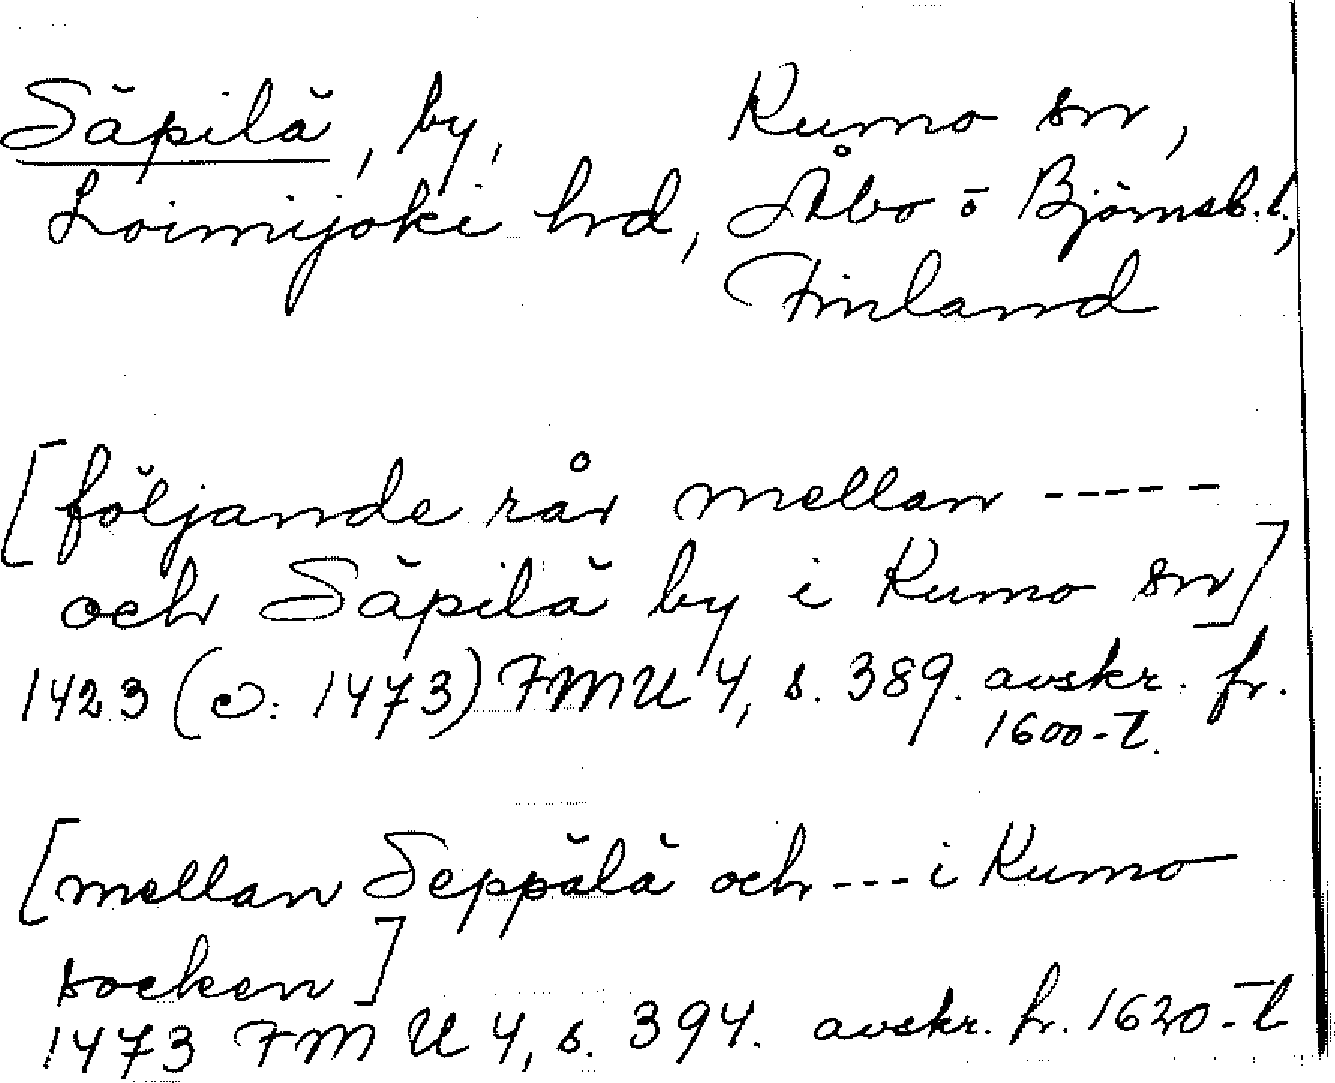 Säpilä, by, Kumo sn,
Loimijoki hrd, Åbo o Björneb. l.,
Finland
[följande rår mellan -----
och Säpilä by i Kumo sn]
1423 (ɔ: 1473) FMU 4, s. 389. avskr. fr.
1600-t.
[mellan Seppälä och --- i Kumo
socken]
1473 FMU 4, s. 394. avskr. fr. 1620-t